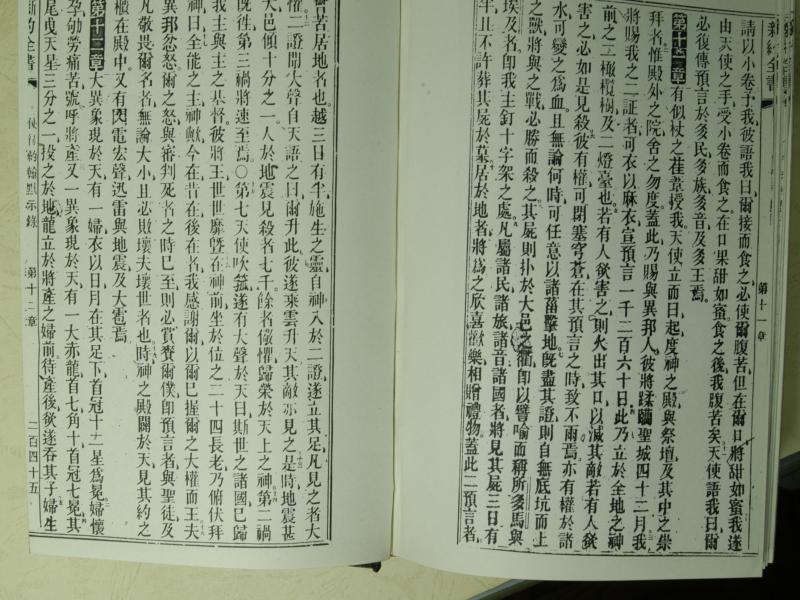 新約全書
第十一章
請以小卷予我彼語我曰爾接而食之必使爾腹苦但在爾口將甜如蜜我遂
由天使之手受小卷而食之在口果甜如蜜食之後我腹苦矣天使語我曰爾
必復傳預言於多民多族多音及多王焉
第十一章有似杖之葦授我天使立而曰起度神之殿與祭壇及其中之崇
拜者惟殿外之院舍之勿度蓋此乃賜與異邦人彼將蹂躪聖城四十二月我
將賜我之二証者可衣以麻衣宣預言一千二百六十日此乃立於全地之神
前之二橄欖樹及二燈臺也若有人欲害之則火出其口以滅其敵若有人欲
害之必如是見殺彼有權可閉塞穹蒼在其預言之時致不雨焉亦有權於諸
水可變之為血且無論何時可任意以諸菑擊地旣盡其證則自無底坑而上
之獸將與之戰必勝而殺之其屍則扑於大邑之衢即以譬喻而稱所多馬與
埃及者即我主釘十字架之處凡屬諸民諸族諸音諸國者將見其屍三日有
半且不許葬其屍於墓居於地者將為之欣喜歡樂相贈禮物蓋此二預言者
苦居地者也越三日有半施生之靈自神入於二證遂立其足凡見之者大
懼二證聞大聲自天語之曰爾升此彼遂乘雲升天其敵亦見之是時地震甚
大邑傾十分之一人於地震見殺者七千餘者懼歸榮於天上之神第二禍
旣往第三禍將速至焉○第七天使吹箛遂有大聲於天曰斯世之諸國已歸
我主與主之基督彼將王世世靡曁在神前坐於位之二十四長老乃俯伏拜
神曰全能之主神歟今在昔在後在者我感謝爾以爾已握爾之大權而王夫
異邦忿怒爾之怒與審判死者之時已至則必賞賚爾僕即預言者與聖徒及
凡敬畏爾名者無論大小且必敗壞夫壞世者也時神之殿開於天見其約之
櫃在殿中又有閃電宏聲迅雷與地震及大雹焉
第十二章大異象現於天有一婦衣以日月在其足下首冠十二星為冕婦懷
孕劬勞痛苦號呼將產又一異象現於天有一大赤龍首七角十首冠七冕其
尾曳天星三分之一投之於地龍立於將產之婦前待產後欲遂吞其子婦生
新約全書
使徒約翰默示錄
第十二章
二百四十五